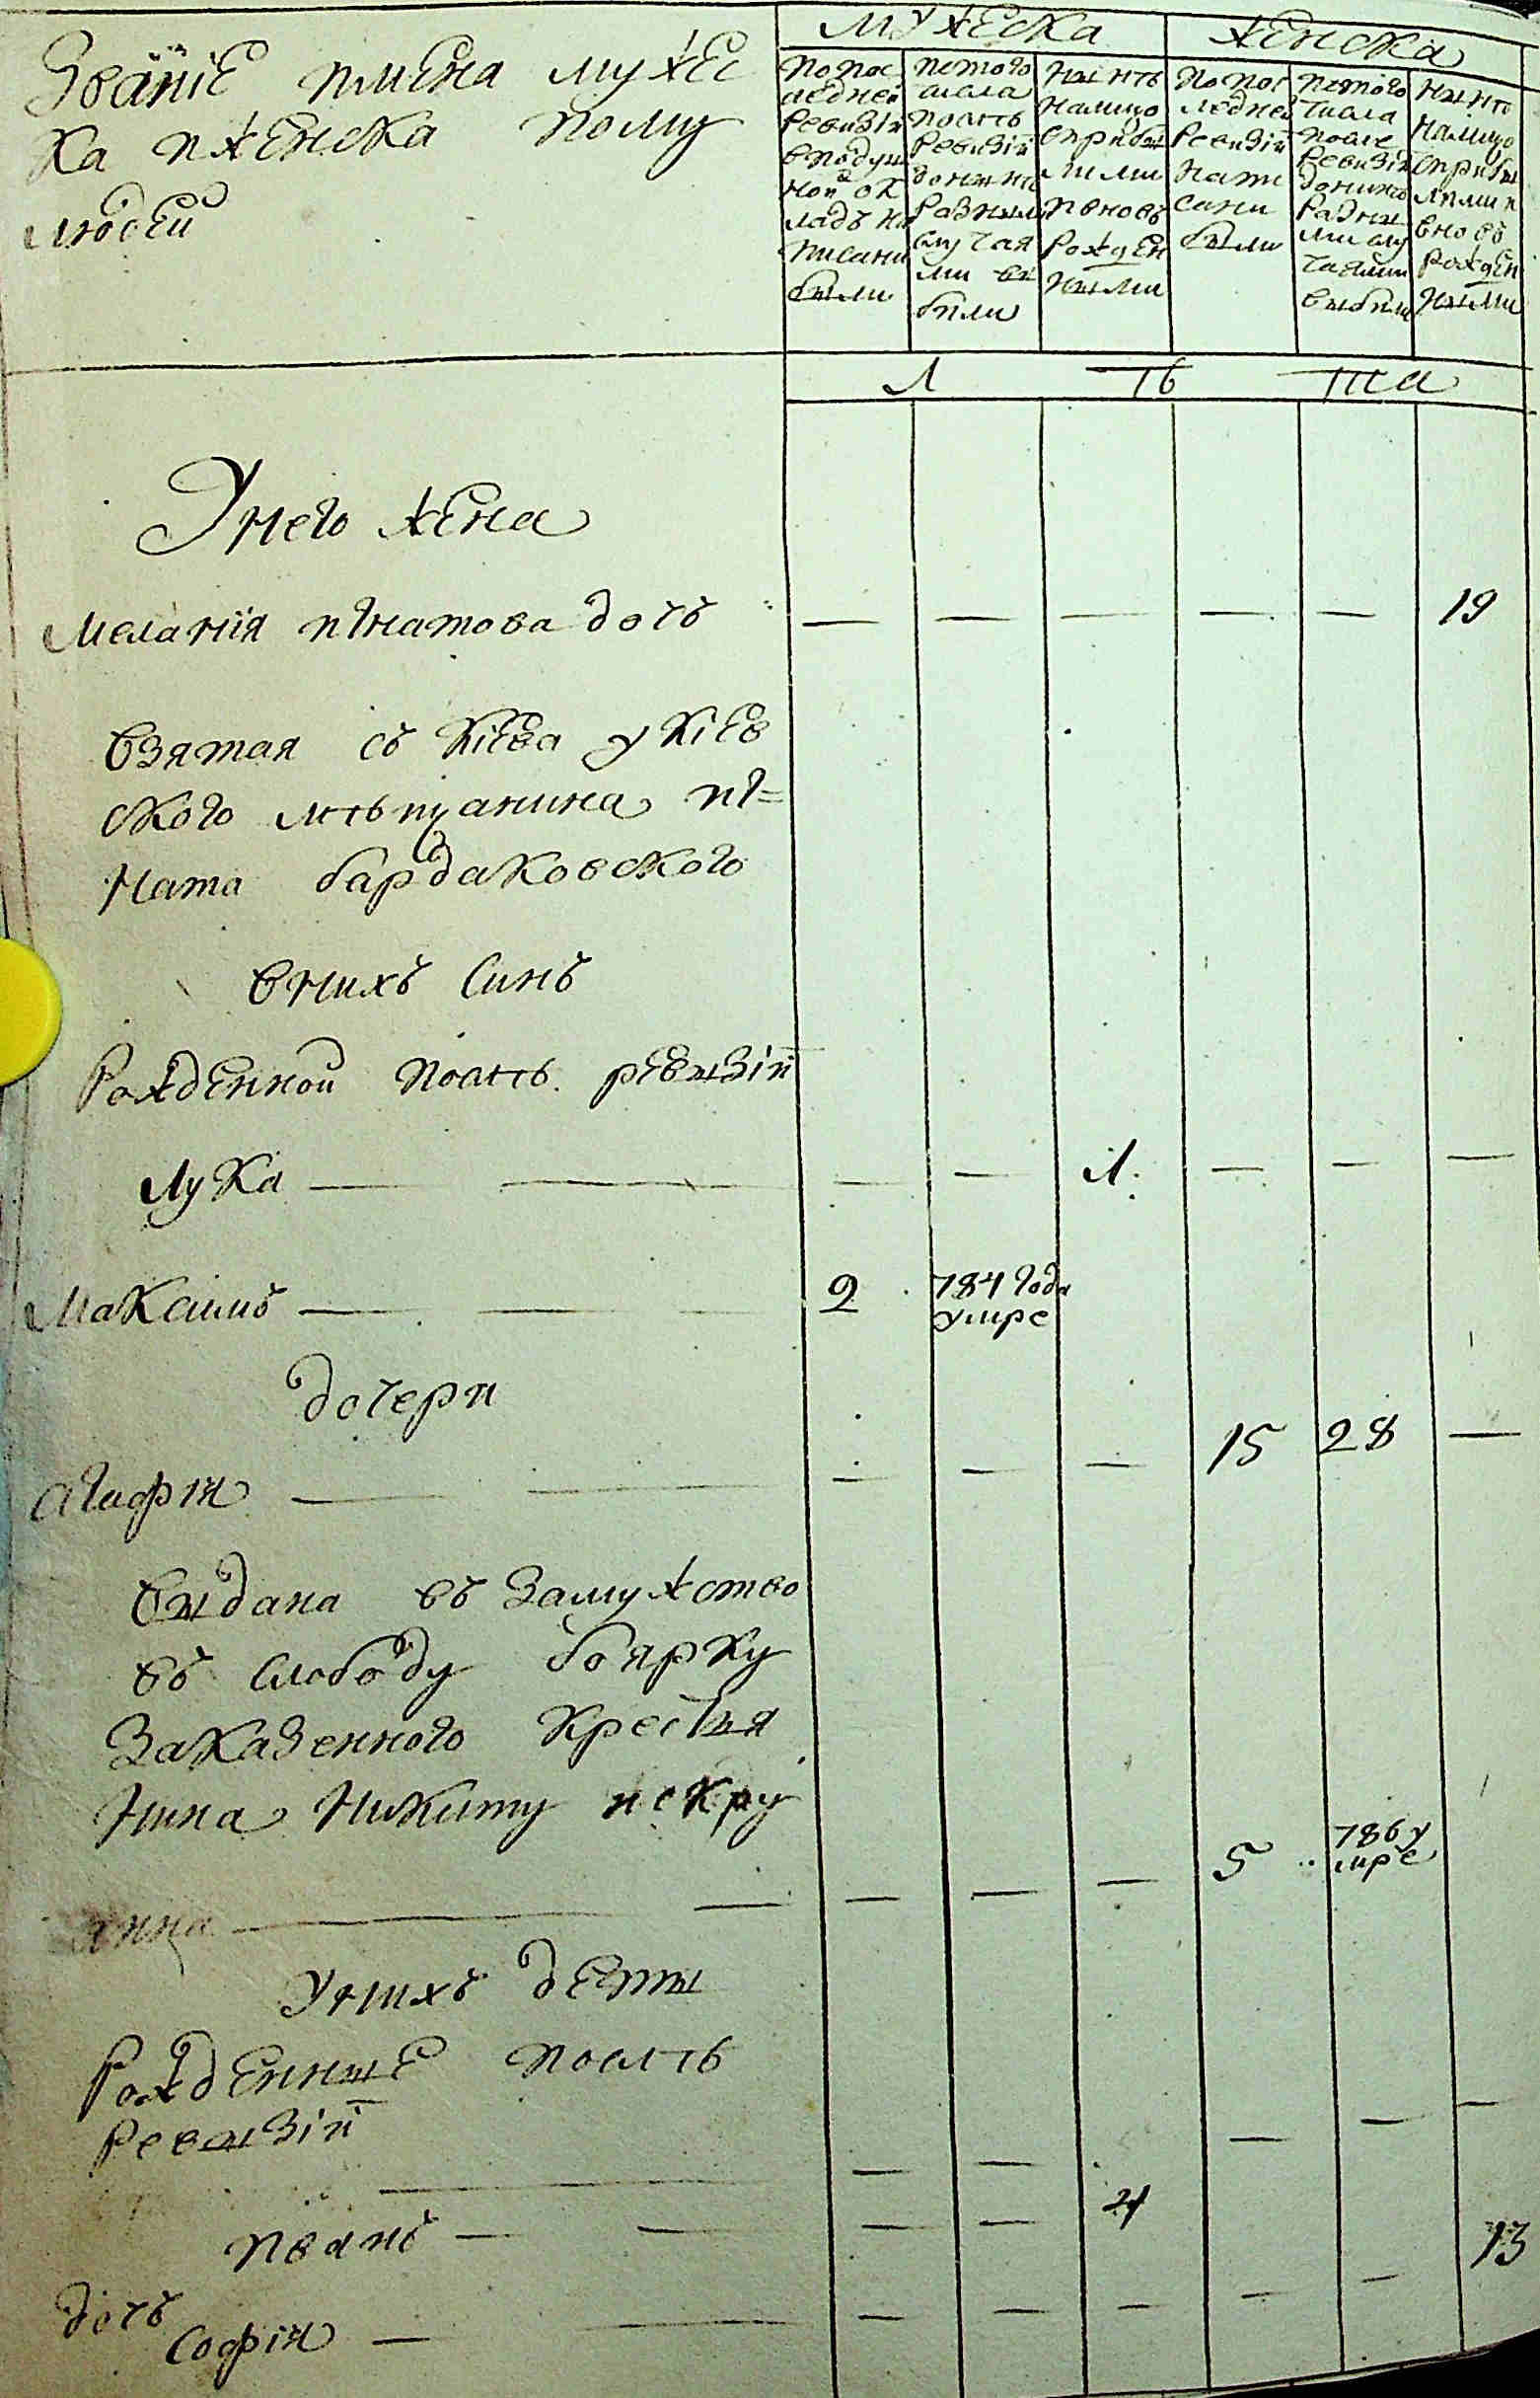 Званїе пимена мужес
ка пженска полу
людей
МУЖЕСКА
ЖЕНСКА
попос
ледней
ревизїи
вподуш
ной ок
ладъ на
писани
были
изтого
числа
послѣ
ревизїи
донынѣ
разными
случая
ми вы
были
нынѣ
налицо
сприбы
лыми
иновъ
рожден
ными
попос
ледней
ревизїи
напи
сани
были
изтого
числа
после
ревизїи
донынѣ
разны
ми слу
чаями
выбыли
нынѣ
налицо
сприбы
лыми и
вновъ
рожден
ными
Л ѣ та
Унего жена
Меланїя игнатова дочъ — — — — — 19
взятая съ Кїева у кїев
ского мѣщанина иг=
ната бардаковского
внихъ синъ
Рожденной послѣ ревызїи
Лука — — — — 1 — — —
Максимъ — — 2 784 года
умре
дочери
агафїя — — — — — 15 28 —
выдана въ замужство
въ слободу боярку
заказенного крестья
нина Никиту искру
анна — — — — — 5 786 у
мре
унихъ деты
Рожденные послѣ
Ревызїи
иванъ — — — — 4 — —
дочъ
Софїя — — — — — — — 13